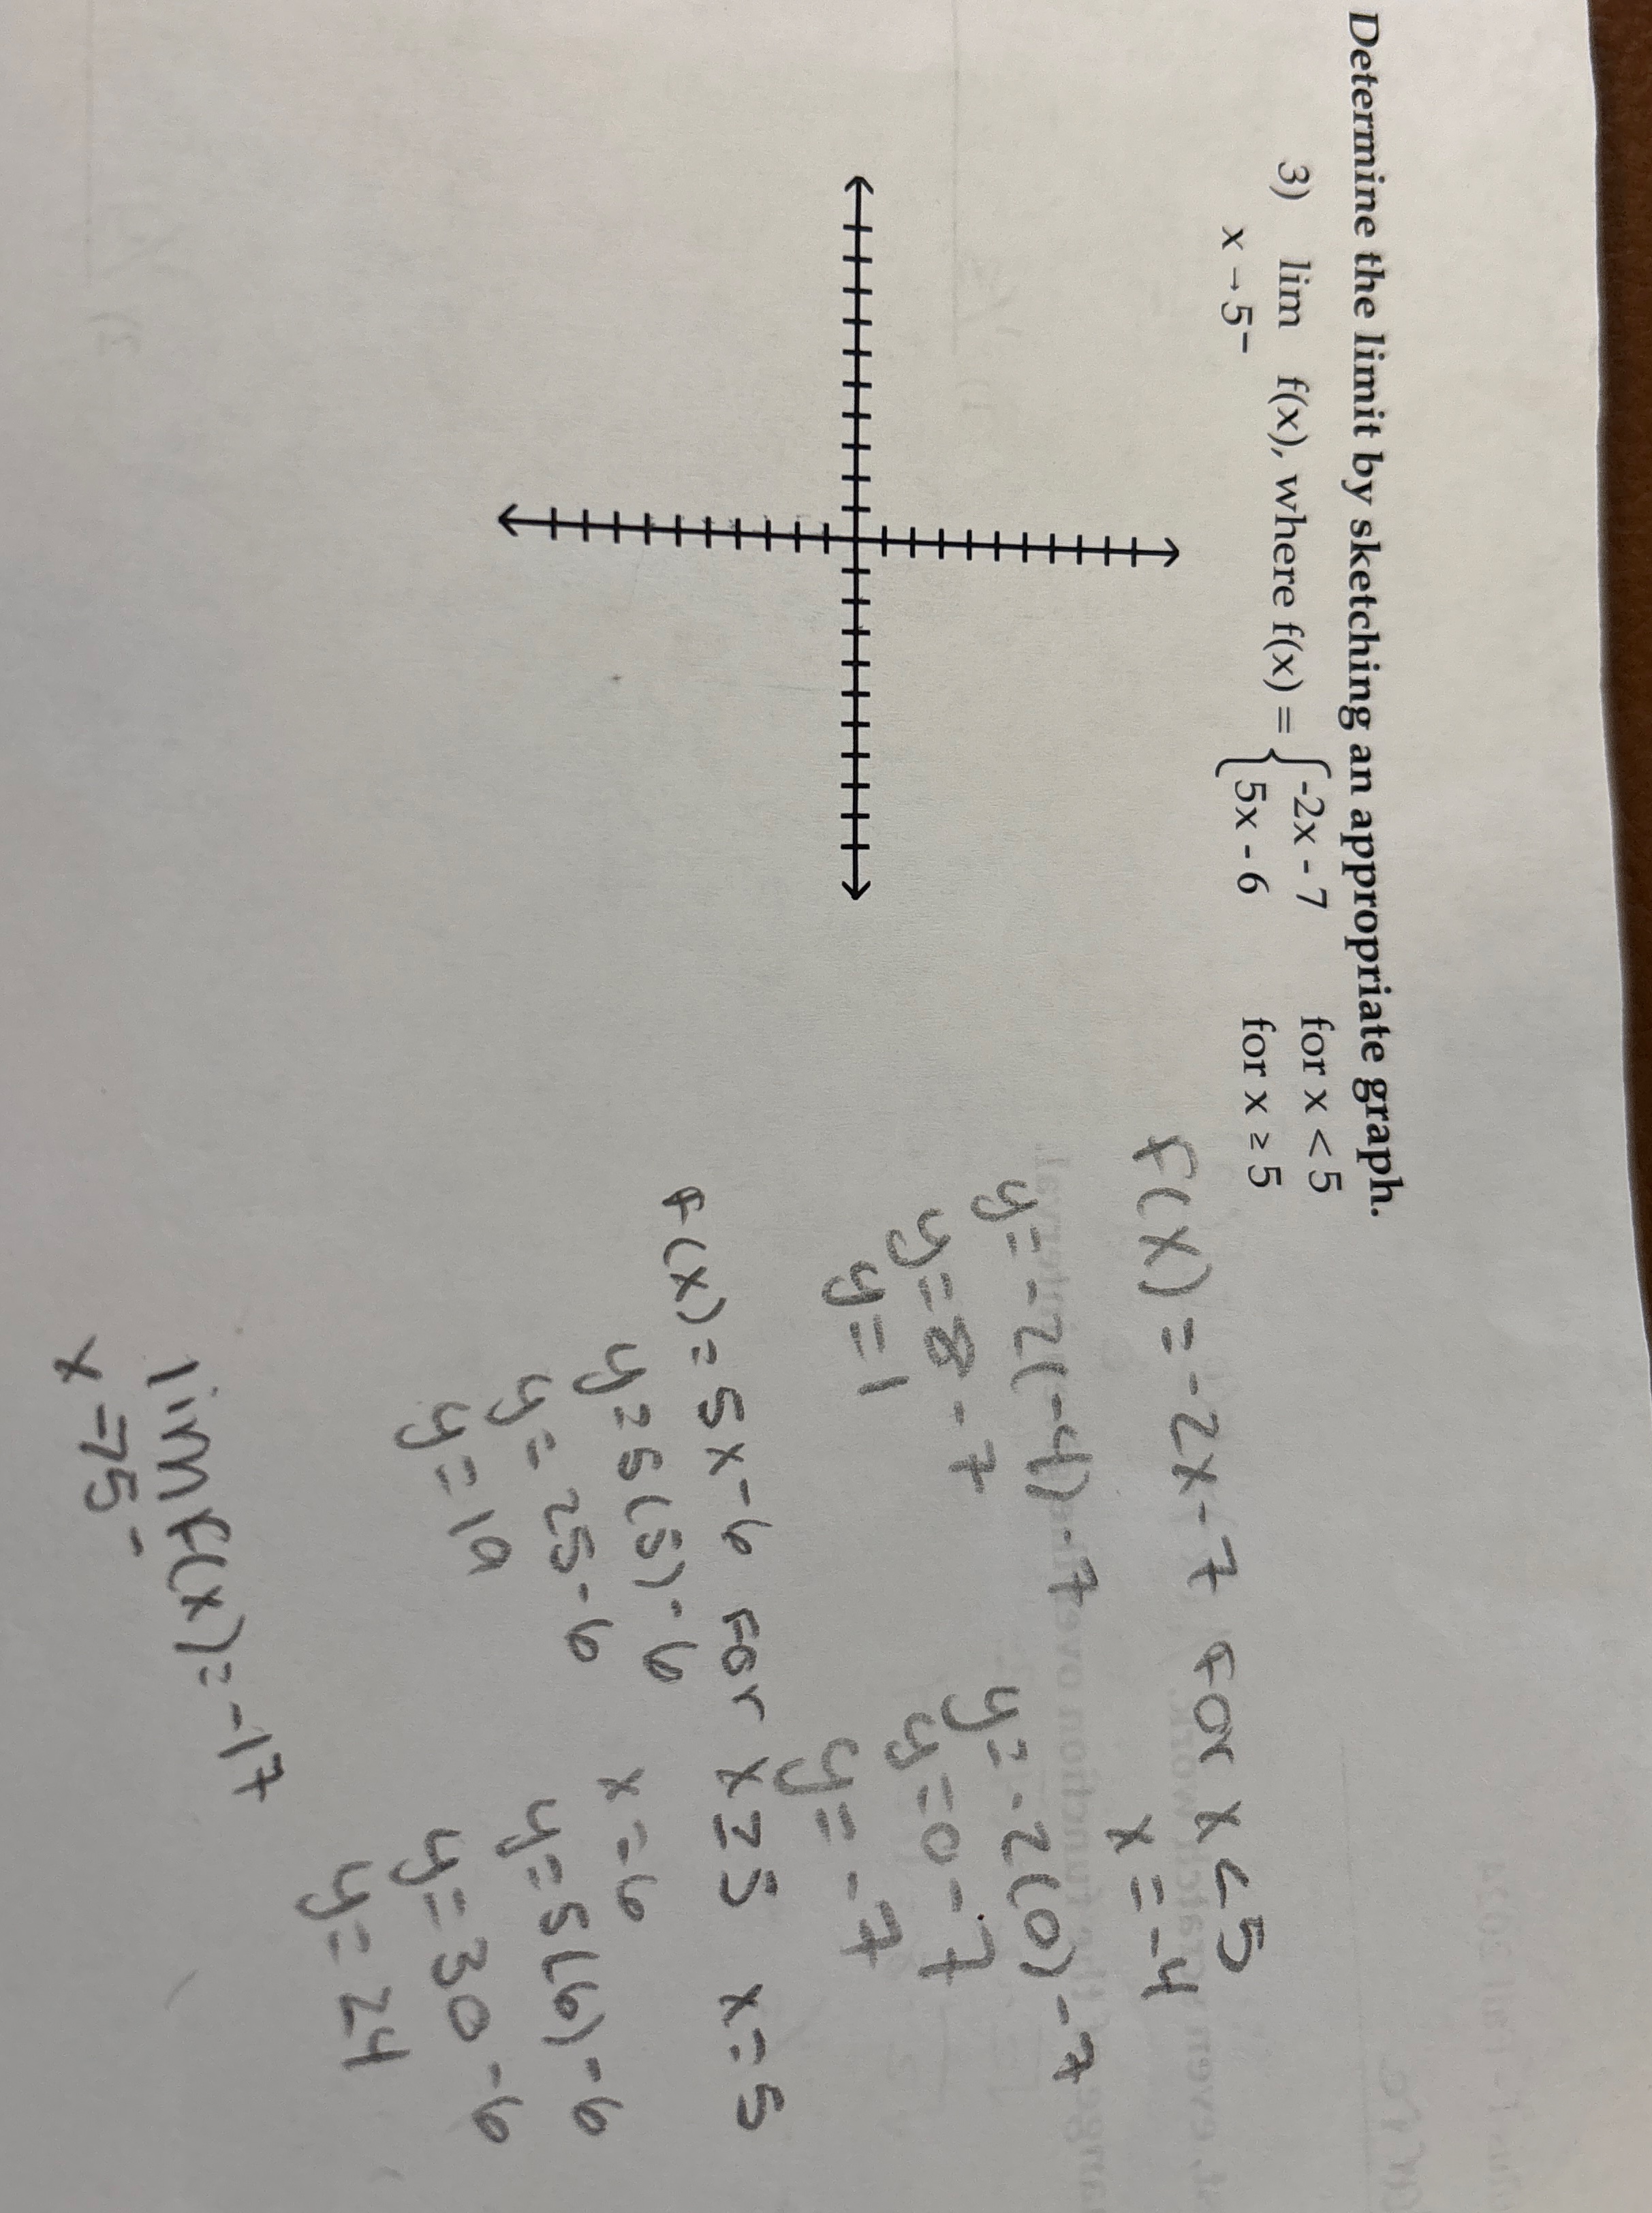 Determine the limit by sketching an appropriate graph.
3) lim f(x), where f(x) = { -2x - 7 for x < 5
x → 5⁻ 5x - 6 for x ≥ 5
F(x) = -2x-7 for x < 5
x = -4
y = -2(-4) -7
y = 8 - 7
y = 1
y = -2(0) -7
y = 0 - 7
y = -7
f(x) = 5x-6 for x ≥ 5 x = 5
y = 5(5) -6
y = 25-6
y = 19
x = 6
y = 5(6) -6
y = 30 -6
y = 24
lim f(x) = -17
x → 5⁻